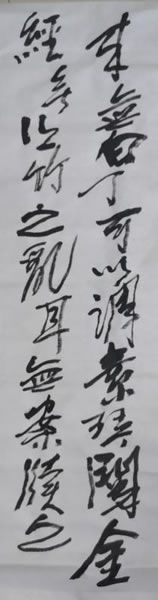 来無白丁可以調素琴閱金
經无丝竹之亂耳無案牘之